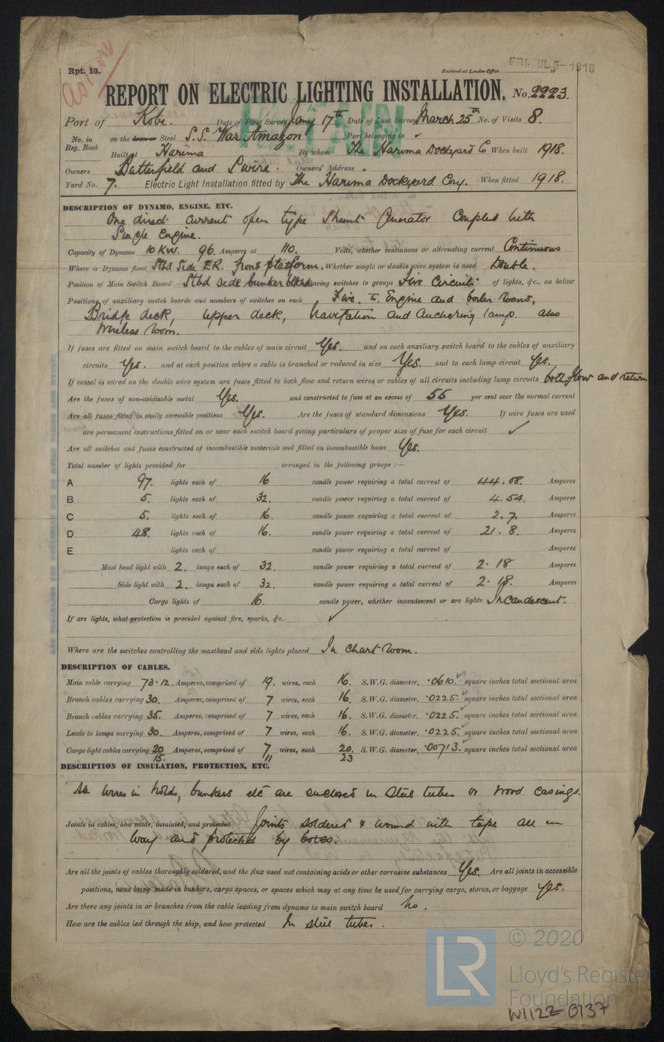 Rpt. 13.
Received at London Office
FRI. JUL 5-1918
REPORT ON ELECTRIC LIGHTING INSTALLATION. No. 2223.
Port of Kobe. Date of First Survey Jany 17th Date of Last Survey March 25th No. of Visits 8.
No. in Reg. Book on the Iron or Steel S.S. War Amazon Port belonging to
Built at Harima By whom The Harima Dockyard Co When built 1918.
Owners Butterfield and Swire. Owners' Address
Yard No. 7. Electric Light Installation fitted by The Harima Dockyard Coy. When fitted 1918.
DESCRIPTION OF DYNAMO, ENGINE, ETC.
One direct current open type Shunt Generator Coupled with
Single Engine.
Capacity of Dynamo 10 KW. 96 Amperes at 110. Volts, whether continuous or alternating current Continuous
Where is Dynamo fixed Stbd Side E.R. front platform. Whether single or double wire system is used Double.
Position of Main Switch Board Stbd side bunker bhd having switches to groups Five Circuits of lights, &c., as below
Positions of auxiliary switch boards and numbers of switches on each Five. To Engine and boiler rooms,
Bridge deck, upper deck, Navigation and Anchoring lamps also
Wireless room.
If fuses are fitted on main switch board to the cables of main circuit Yes. and on each auxiliary switch board to the cables of auxiliary
circuits Yes. and at each position where a cable is branched or reduced in size Yes. and to each lamp circuit Yes.
If vessel is wired on the double wire system are fuses fitted to both flow and return wires or cables of all circuits including lamp circuits both flow and return
Are the fuses of non-oxidizable metal Yes. and constructed to fuse at an excess of 55 per cent over the normal current
Are all fuses fitted in easily accessible positions Yes. Are the fuses of standard dimensions Yes. If wire fuses are used
are permanent instructions fitted on or near each switch board giving particulars of proper size of fuse for each circuit ✓
Are all switches and fuses constructed of incombustible materials and fitted on incombustible bases Yes.
Total number of lights provided for arranged in the following groups :—
A 97. lights each of 16 candle power requiring a total current of 44.08. Amperes
B 5. lights each of 32. candle power requiring a total current of 4.54. Amperes
C 5. lights each of 16. candle power requiring a total current of 2.7. Amperes
D 48. lights each of 16. candle power requiring a total current of 21.8. Amperes
E lights each of candle power requiring a total current of Amperes
Mast head light with 2. lamps each of 32. candle power requiring a total current of 2.18 Amperes
Side light with 2. lamps each of 32. candle power requiring a total current of 2.18. Amperes
Cargo lights of 16. candle power, whether incandescent or arc lights Incandescent.
If arc lights, what protection is provided against fire, sparks, &c. ✓
Where are the switches controlling the masthead and side lights placed In Chart room.
DESCRIPTION OF CABLES.
Main cable carrying 73.12. Amperes, comprised of 19. wires, each 16. S.W.G. diameter, .0610. square inches total sectional area
Branch cables carrying 30. Amperes, comprised of 7 wires, each 16. S.W.G. diameter, .0225. square inches total sectional area
Branch cables carrying 35. Amperes, comprised of 7 wires, each 16. S.W.G. diameter, .0225. square inches total sectional area
Leads to lamps carrying 30. Amperes, comprised of 7 wires, each 16. S.W.G. diameter, .0225. square inches total sectional area
Cargo light cables carrying 20 Amperes, comprised of 7 wires, each 20. S.W.G. diameter, .00713. square inches total sectional area
15. 11 23
DESCRIPTION OF INSULATION, PROTECTION, ETC.
All wires in holds, bunkers etc are enclosed in steel tubes or wood casings.
Joints in cables, how made, insulated, and protected Joints soldered & wound with tape all in
way and protected by boxes.
Are all the joints of cables thoroughly soldered, and the flux used not containing acids or other corrosive substances Yes. Are all joints in accessible
positions, none being made in bunkers, cargo spaces, or spaces which may at any time be used for carrying cargo, stores, or baggage Yes.
Are there any joints in or branches from the cable leading from dynamo to main switch board No.
How are the cables led through the ship, and how protected In steel tubes.
LR
© 2020
Lloyd's Register
Foundation
W1122-0137